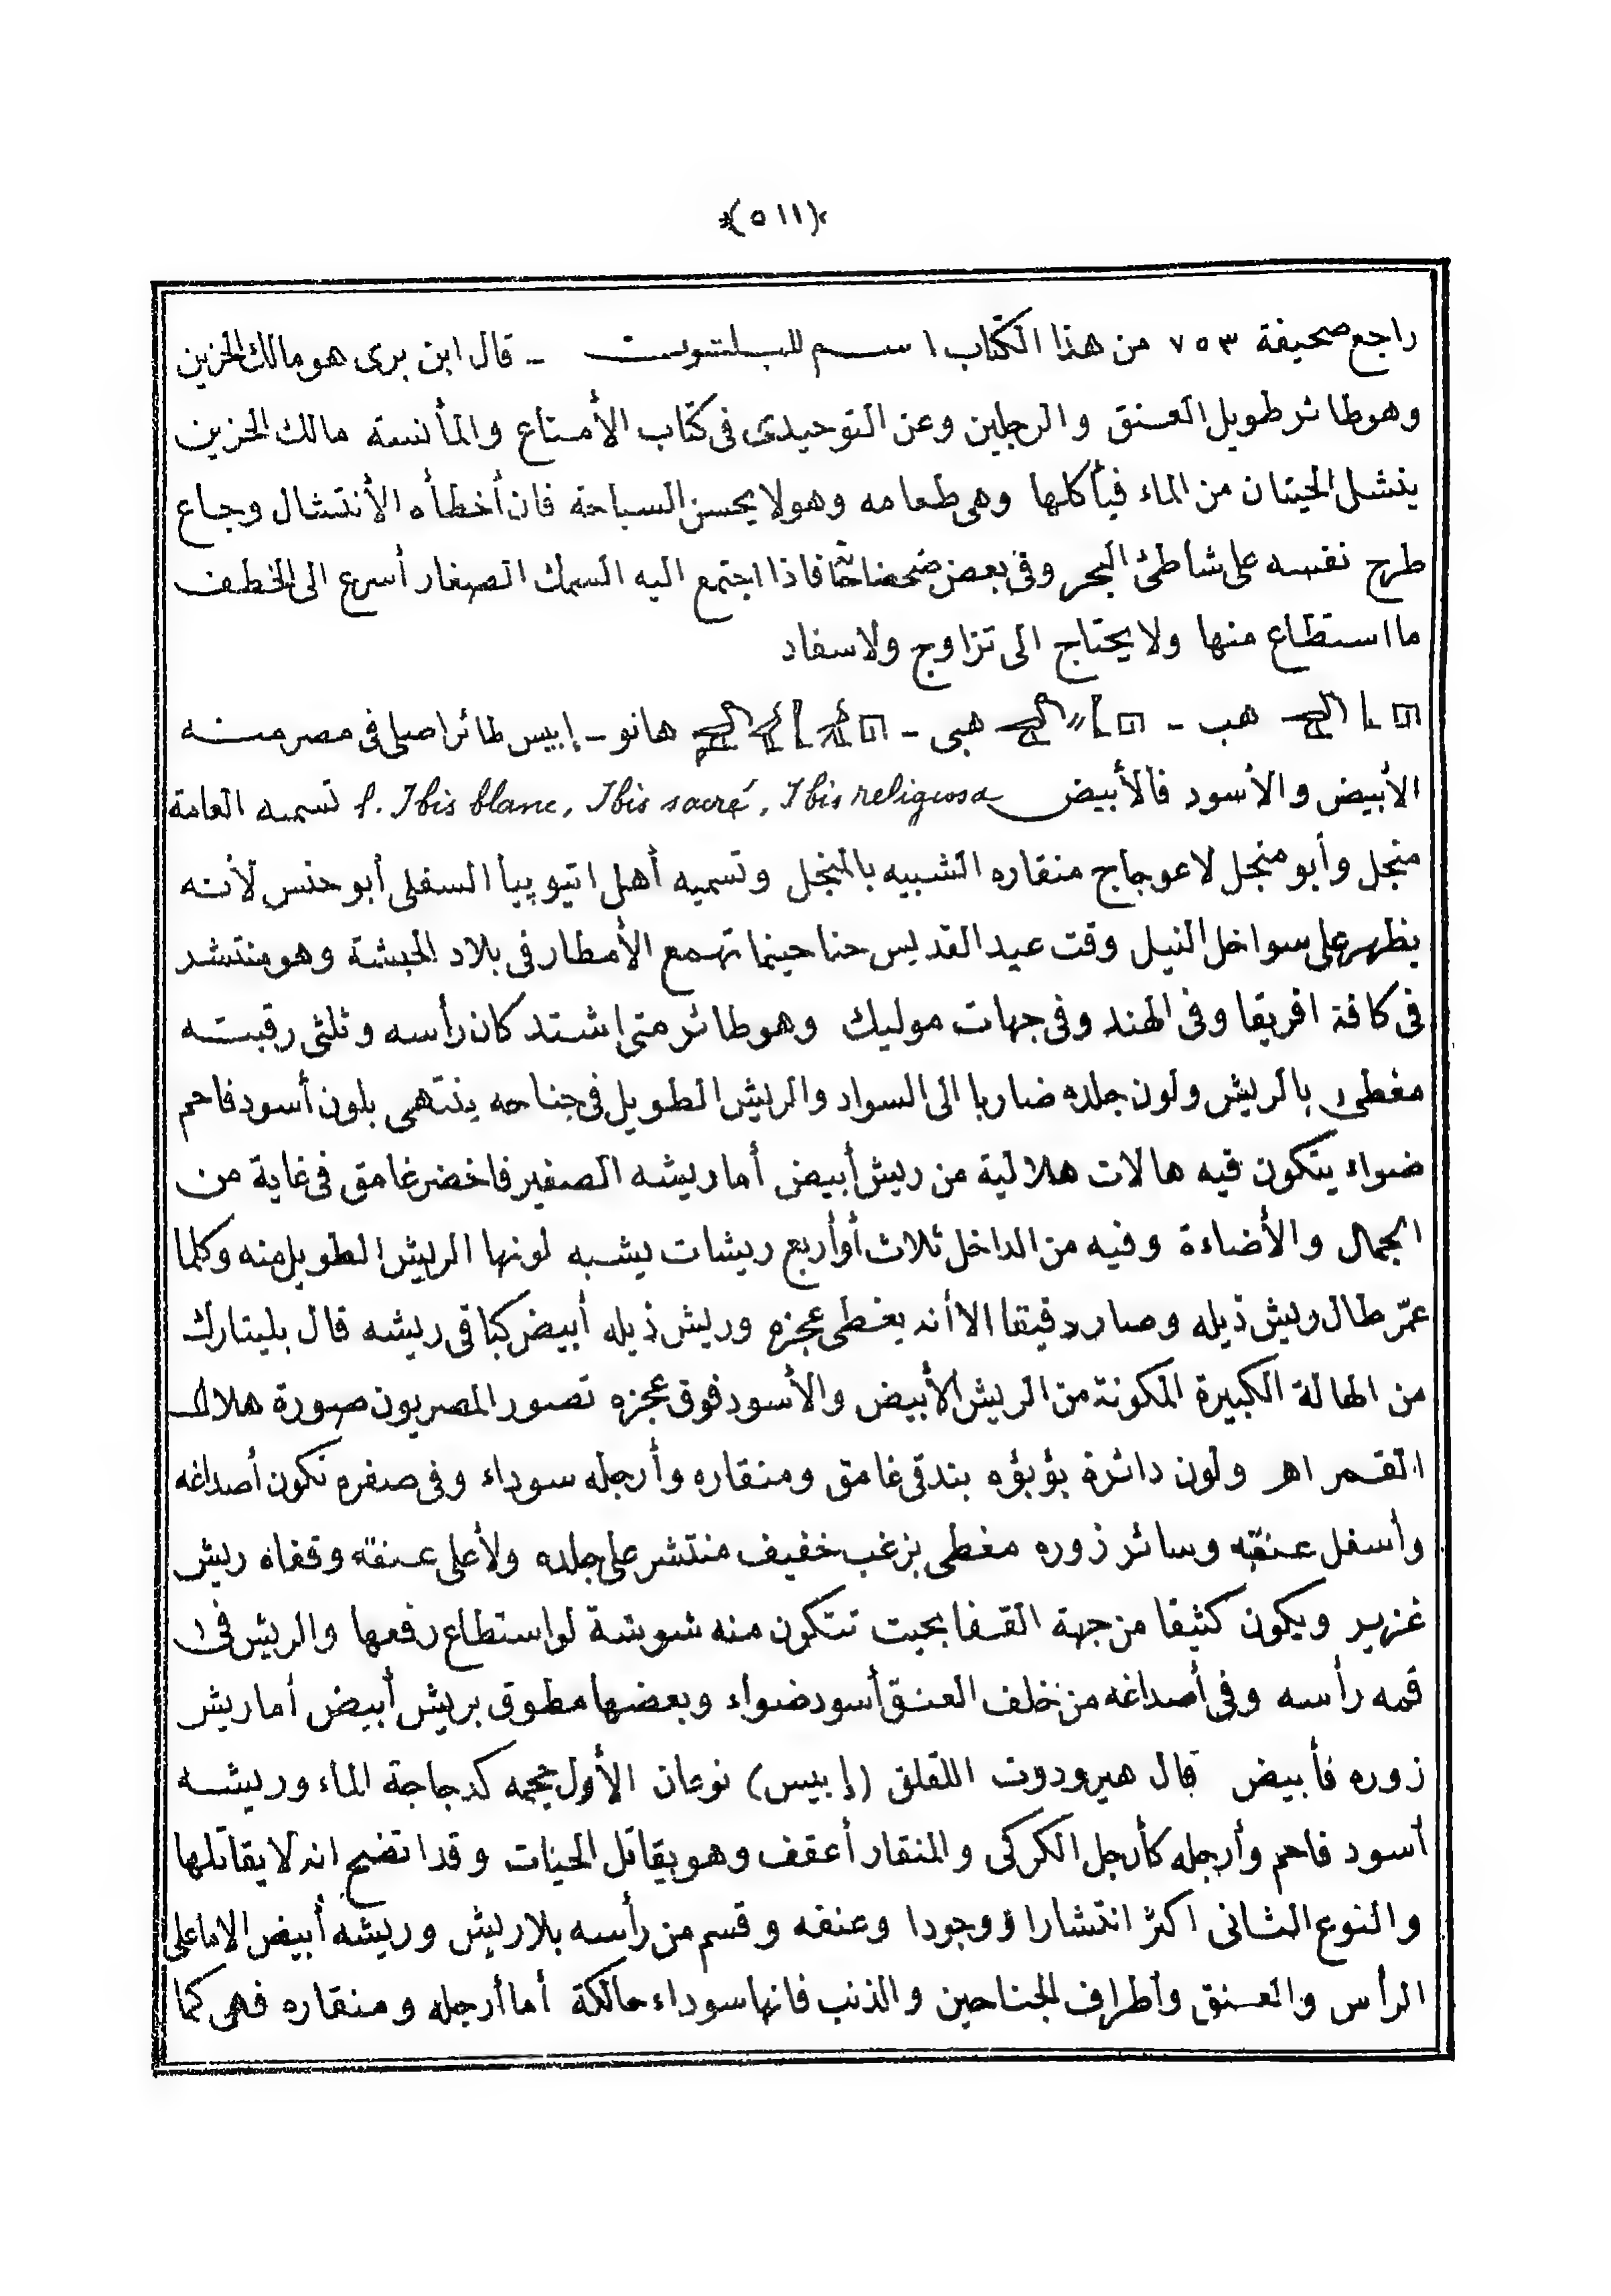 (٥١١)
راجع صحيفة ٧٥٣ من هذا الكتاب اسم للبلشون - قال ابن برى هو مالك الحزين
وهو طائر طويل العنق والرجلين وعن التوحيدى فى كتاب الأمتاع والمأنسة مالك الحزين
ينشل الحيتان من الماء فيأكلها وهى طعامه وهو لا يحسن السباحة فان أخطأه الأنتشال وجاع
طرح نفسه على شاطئ البحر وفى بعض ضحضاحها فاذا اجتمع اليه السمك الصغار أسرع الى الخطف
ما استطاع منها ولا يحتاج الى تزاوج ولا سفاد
هب - هبى - هانو - إبيس طائر اصلى فى مصر منه
الأبيض والأسود فالأبيض f. Ibis blanc, Ibis sacré, Ibis religiosa تسميه العامة
منجل وأبو منجل لاعوجاج منقاره الشبيه بالمنجل وتسميه أهل اتيوپيأ السفلى أبو حنس لأنه
يظهر على سواحل النيل وقت عيد القديس حنا حينما تهمع الأمطار فى بلاد الحبشة وهو منتشر
فى كافة افريقا وفى الهند وفى جهات موليك وهو طائر متى اشتد كان رأسه وثلثى رقبته
مغطى بالريش ولون جلده ضاربا الى السواد والريش الطويل فى جناحه ينتهى بلون أسود فاحم
ضواء يتكون فيه هالات هلالية من ريش أبيض أما ريشه الصغير فاخضر غامق فى غاية من
الجمال والأضاءة وفيه من الداخل ثلاث أو أربع ريشات يشبه لونها الريش الطويل منه وكلما
عمّر طال ريش ذيله وصار دقيقا الا أنه يغطى عجزه وريش ذيله أبيض كباقى ريشه قال بليتارك
من الهالة الكبيرة المكونة من الريش الأبيض والأسود فوق عجزه تصور المصريون صورة هلال
القمر اهر ولون دائرة بؤبؤه بندقى غامق ومنقاره وأرجله سوداء وفى صغره تكون أصداغه
وأسفل عنقه وسائر زوره مغطى بزغب خفيف منتشر على جلده ولأعلى عنقه وقفاه ريش
غزير ويكون كثيفا من جهة القفا بحيث تتكون منه شوشة لو استطاع رفعها والريش فى
قمه رأسه وفى أصداغه من خلف العنق أسود ضواء وبعضها مطوق بريش أبيض أما ريش
زوره فأبيض قال هيرودوت اللقلق (إبيس) نوعان الأول حجمه كدجاجة الماء وريشه
أسود فاحم وأرجله كأرجل الكركى والمنقار أعقف وهو يقاتل الحيات وقد اتضح انه لا يقاتلها
والنوع الثانى اكثر انتشارا ووجودا وعنقه وقسم من رأسه بلا ريش وريشه أبيض الا ما على
الرأس والعنق وأطراف الجناحين والذنب فانها سوداء حالكة أما أرجله ومنقاره فهى كما